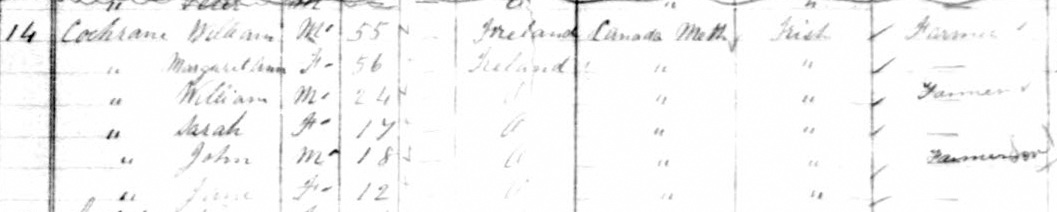 " Peter M " "
14 Cochrane William M 55 Ireland Canada Meth Irish Farmer
" Margaret Ann F 56 Ireland " " —
" William M 24 O " " Farmer
" Sarah F 17 O " " —
" John M 18 O " " Farmer Son
" Jane F 12 O " "